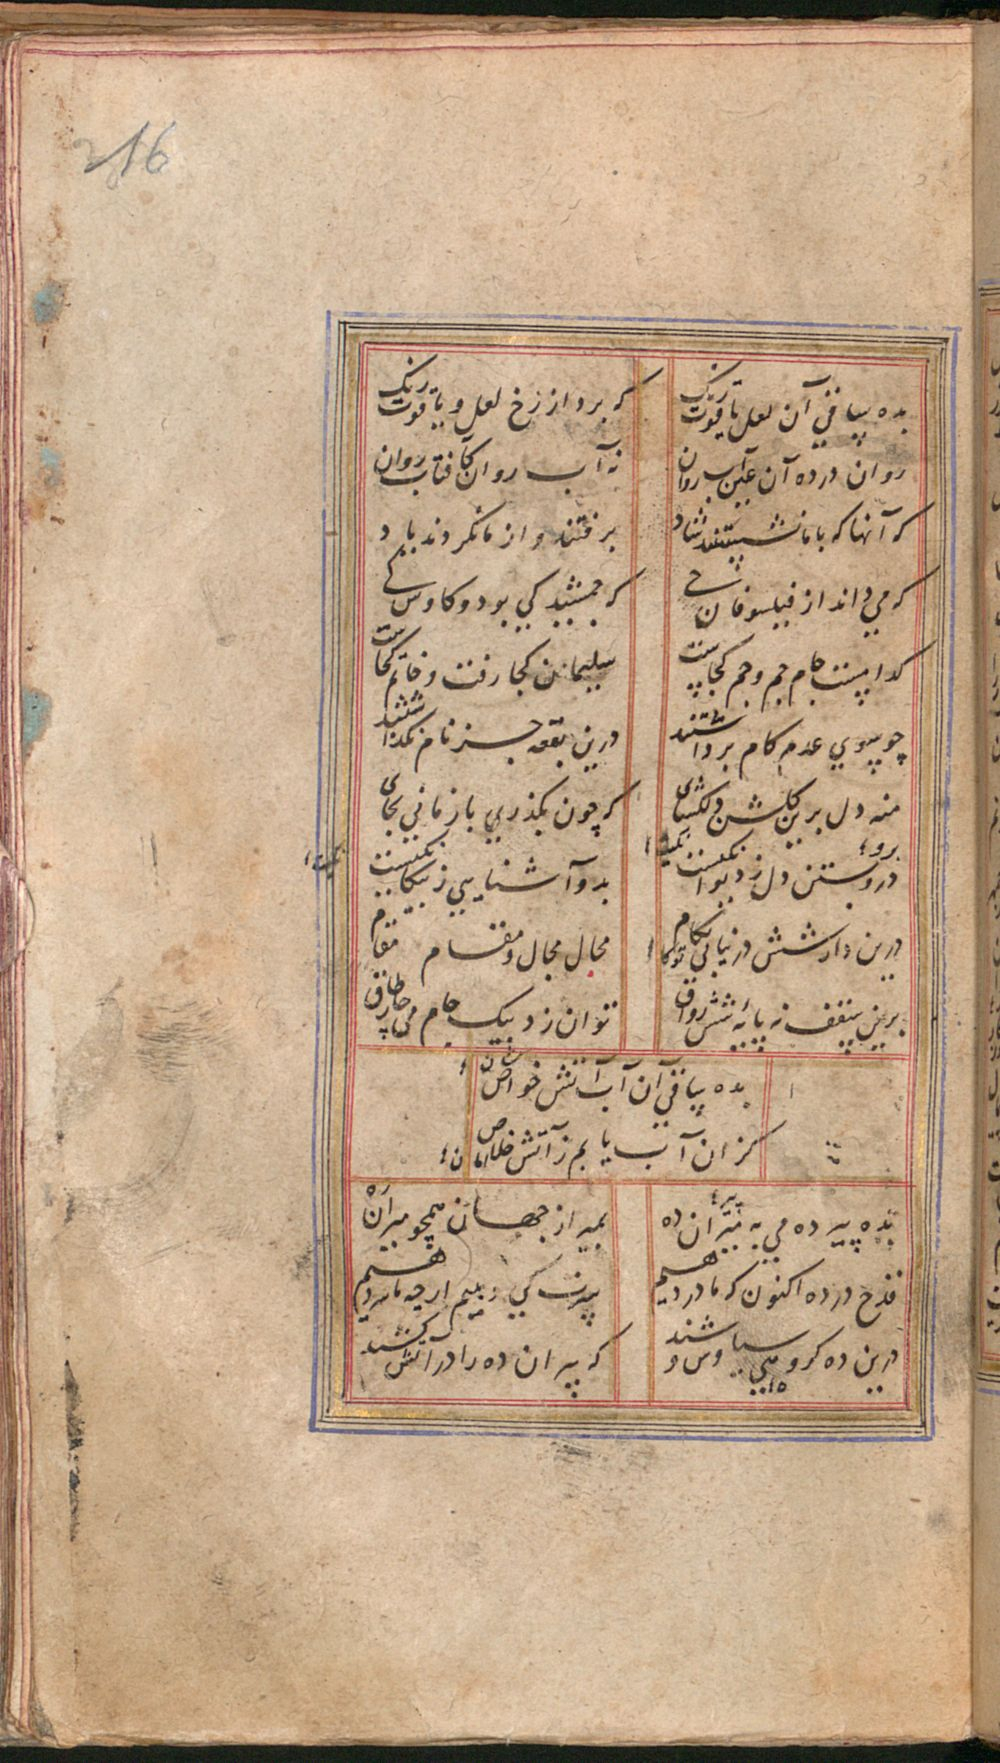 216
بده ساقی آن لعل یاقوت رنگ
که برد از رخ لعل و یاقوت رنگ
روان در ده آن عین آب روان
نه آب روان کآفتاب روان
که آنها که با ما نشستند شاد
برفتند و از ما نکردند یاد
که می داند از فیلسوفان حی
که جمشید کی بود و کاوس کی
کدامست جام جم و جم کجاست
سلیمان کجا رفت و خاتم کجاست
چو سوی عدم کام برداشتند
درین بقعه جز نام نگذاشتند
منه دل برین گلشن دلکشای
که چون بگذری باز مانی بجای
درو بستن دل ز دیوانگیست
بدو آشنایی ز بیگانگیست
درین دار شش در نیابی تو کام
محال مجال و مقام
برین سقف نه پایه شش رواق
توان زد بیک جام می چار طاق
بده ساقی آن آب آتش خواص
کزان آب یابم ز آتش خلاص
بده پیر ده می به میران ده
بمیر از جهان همچو میران ده
قدح در ده اکنون که ما در دهیم
درین ده گروهی سیاوش وشند
که پیران ده را در آتش کشند